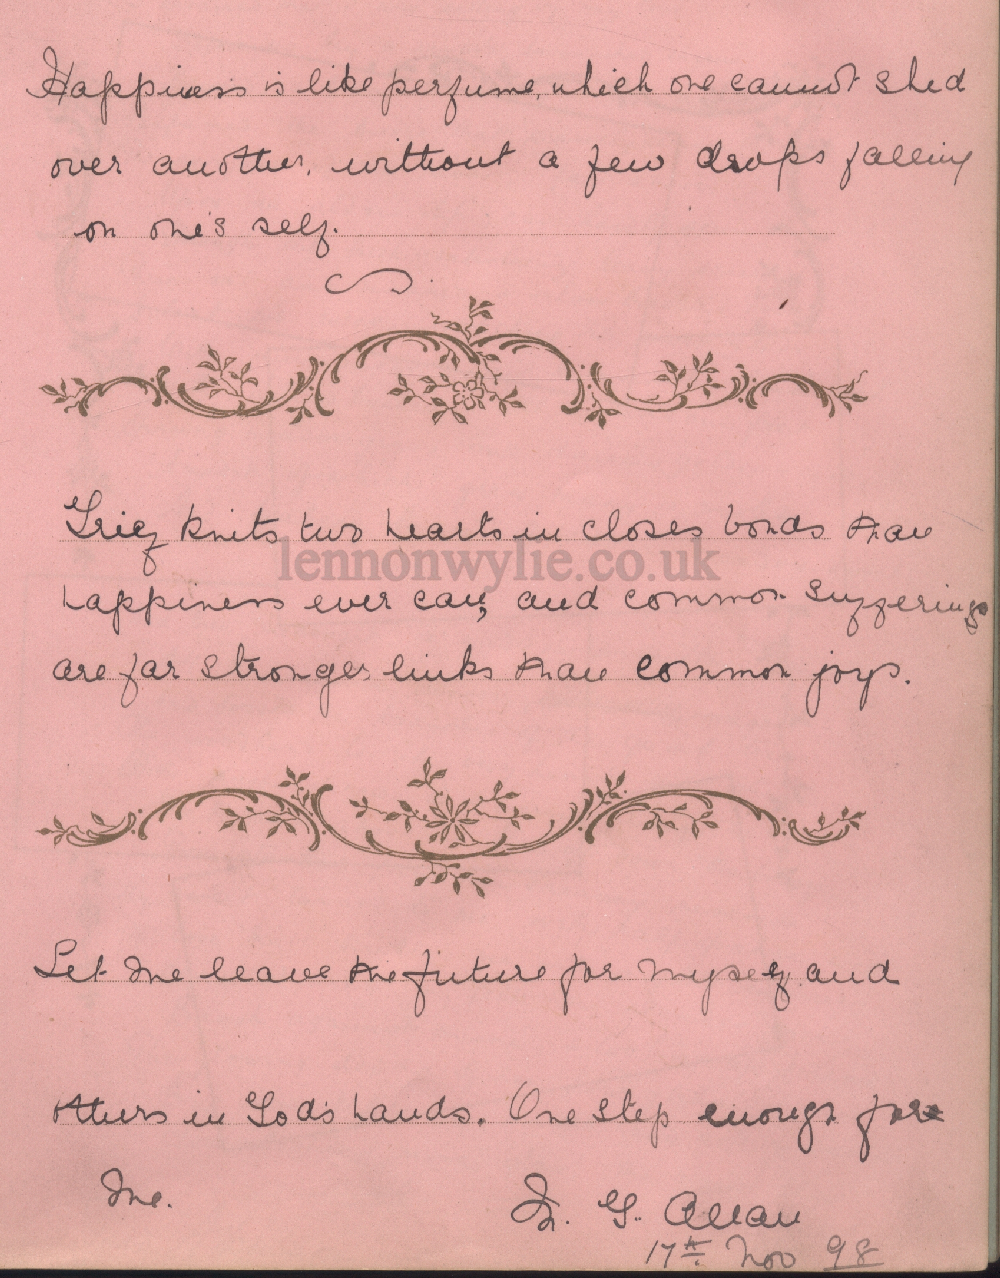 Happiness is like perfume, which one cannot shed
over another, without a few drops falling
on one's self.
Grief knits two hearts in closer bonds than
lennonwylie.co.uk
happiness ever can, and common sufferings
are far stronger links than common joys.
Let me leave the future for myself and
others in God's hands. One step enough for
me.
G. Allan
17th Nov 98